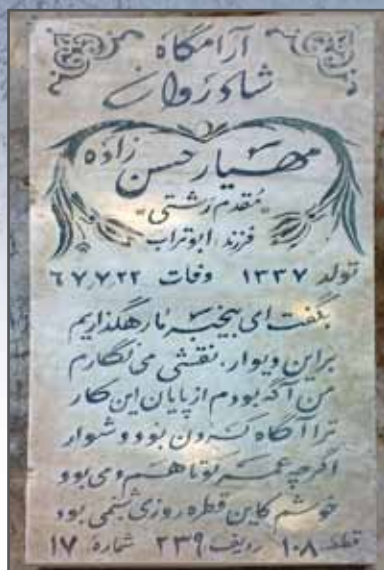 آرامگاه
شادروان
مهیار حسن زاده
"مقدم رشتی"
فرزند ابوتراب
تولد ۱۳۳۷ وفات ۶۷٫۷٫۲۲
بگفت ای بیخبر ما رهگذاریم
براین دیوار، نقشی می نگارم
من آگه بودم از پایان این کار
ترا آگاه کردن بود دشوار
اگرچه عمر کوتاهم دمی بود
خوشم کاین قطره روزی شبنمی بود
قطعه ۱۰۸ ردیف ۲۳۹ شماره ۱۷